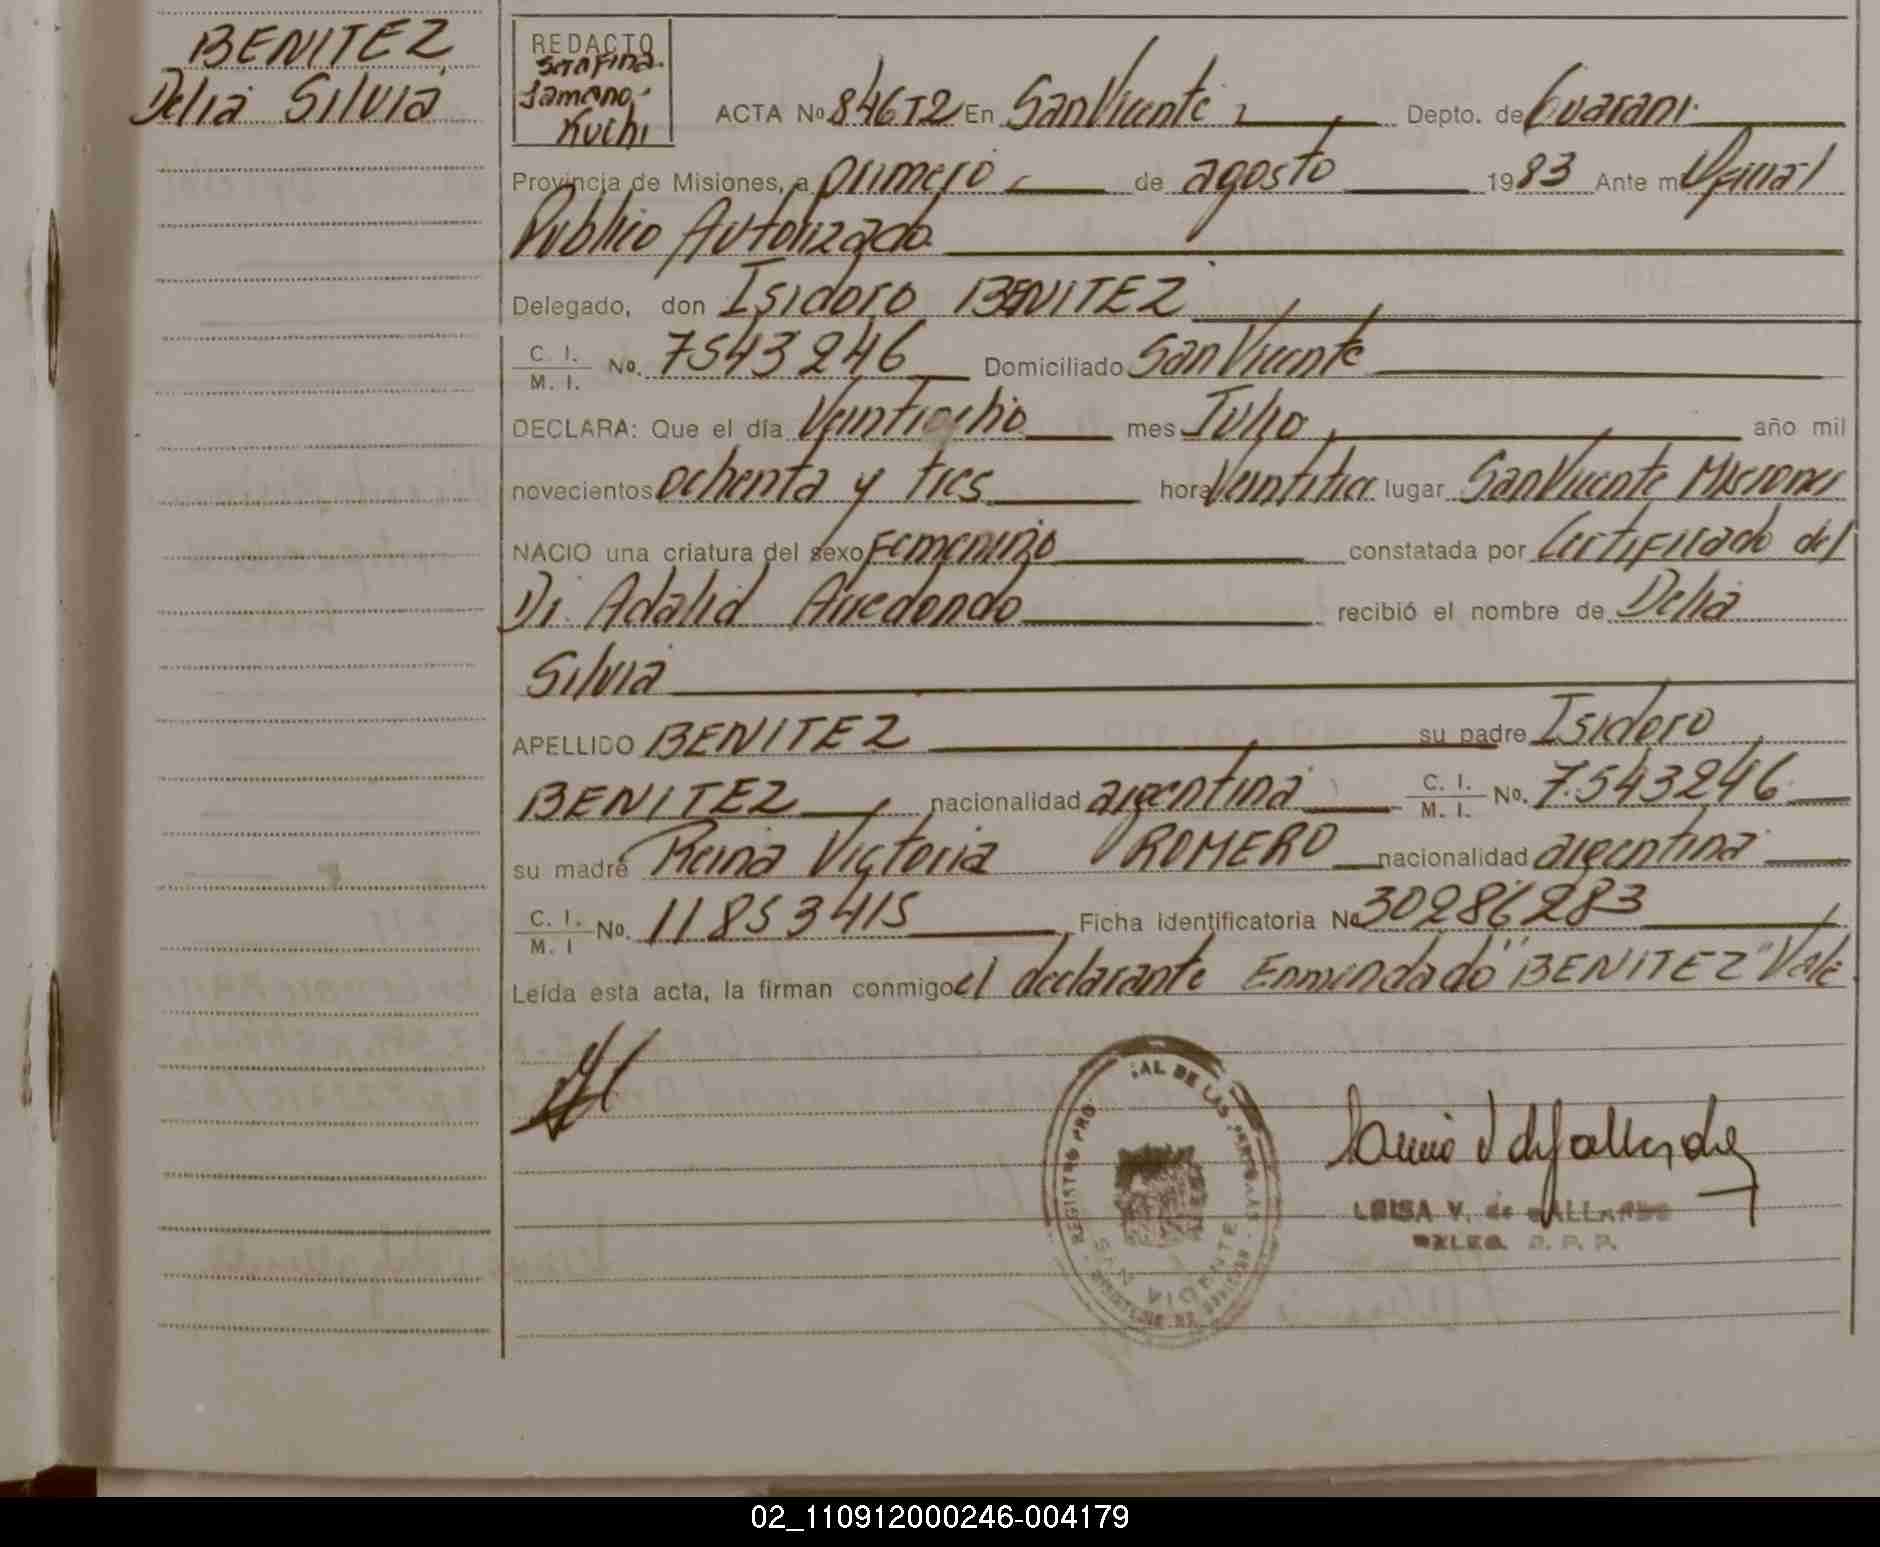 BENITEZ
Delia Silvia
REDACTO
Serafina
Zamano
Kuchi
ACTA No 846T2 En San Vicente Depto. de Guarani
Provincia de Misiones, a primero de agosto 1983 Ante mi Oficial
Publico Autorizado
Delegado, don Isidoro BENITEZ
C. I. / M. I. No. 7543246 Domiciliado San Vicente
DECLARA: Que el día Veintiocho mes Julio año mil
novecientos ochenta y tres hora Veintitres lugar San Vicente Misiones
NACIO una criatura del sexo Femenino constatada por Certificado del
Dr. Adalid Arredondo recibió el nombre de Delia
Silvia
APELLIDO BENITEZ su padre Isidoro
BENITEZ nacionalidad argentina C. I. / M. I. No. 7.543246
su madre Reina Victoria ROMERO nacionalidad argentina
C. I. / M. I No. 11853415 Ficha identificatoria No 30286283
Leída esta acta, la firman conmigo el declarante Enmendado "BENITEZ" Vale
REGISTRO PRO. AL DE LAS PERSONAS
SAN VICENTE
LUISA V. de GALLARDO
R. P. P.
02_110912000246-004179